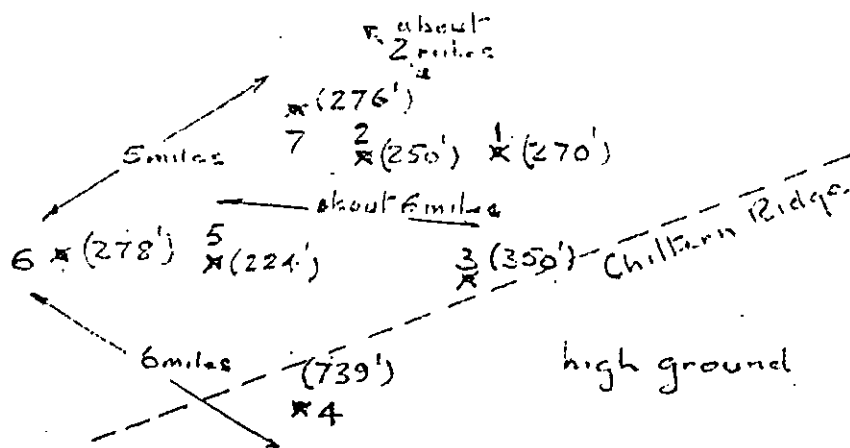 about
2 miles
(276')
7 2 (250') 1 (270')
5 miles
about 6 miles
6 (278') 5 (224')
3 (350') Chiltern Ridge
6 miles
(739')
4
high ground